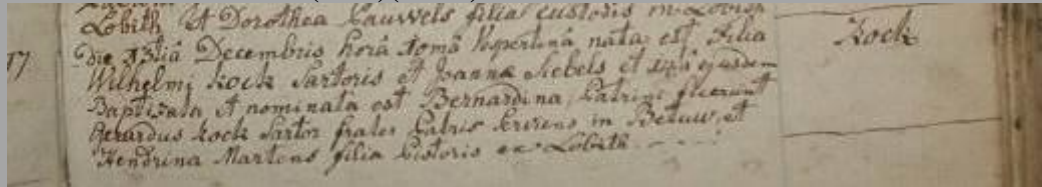 Lobith et Dorothea Pauwels filia custodis in Lobith
17
die 13tiâ Decembris horâ 10mâ Vespertinâ nata est filia
Kock
Wilhelmi Kock Sartoris et Joannæ Siebels et ejusdem
Baptizata et nominata est Bernardina, Patrini fuerunt
Gerardus Kock Sartor frater Patris in Betuw, et
Hendrina Martens filia Pistoris ex Lobith